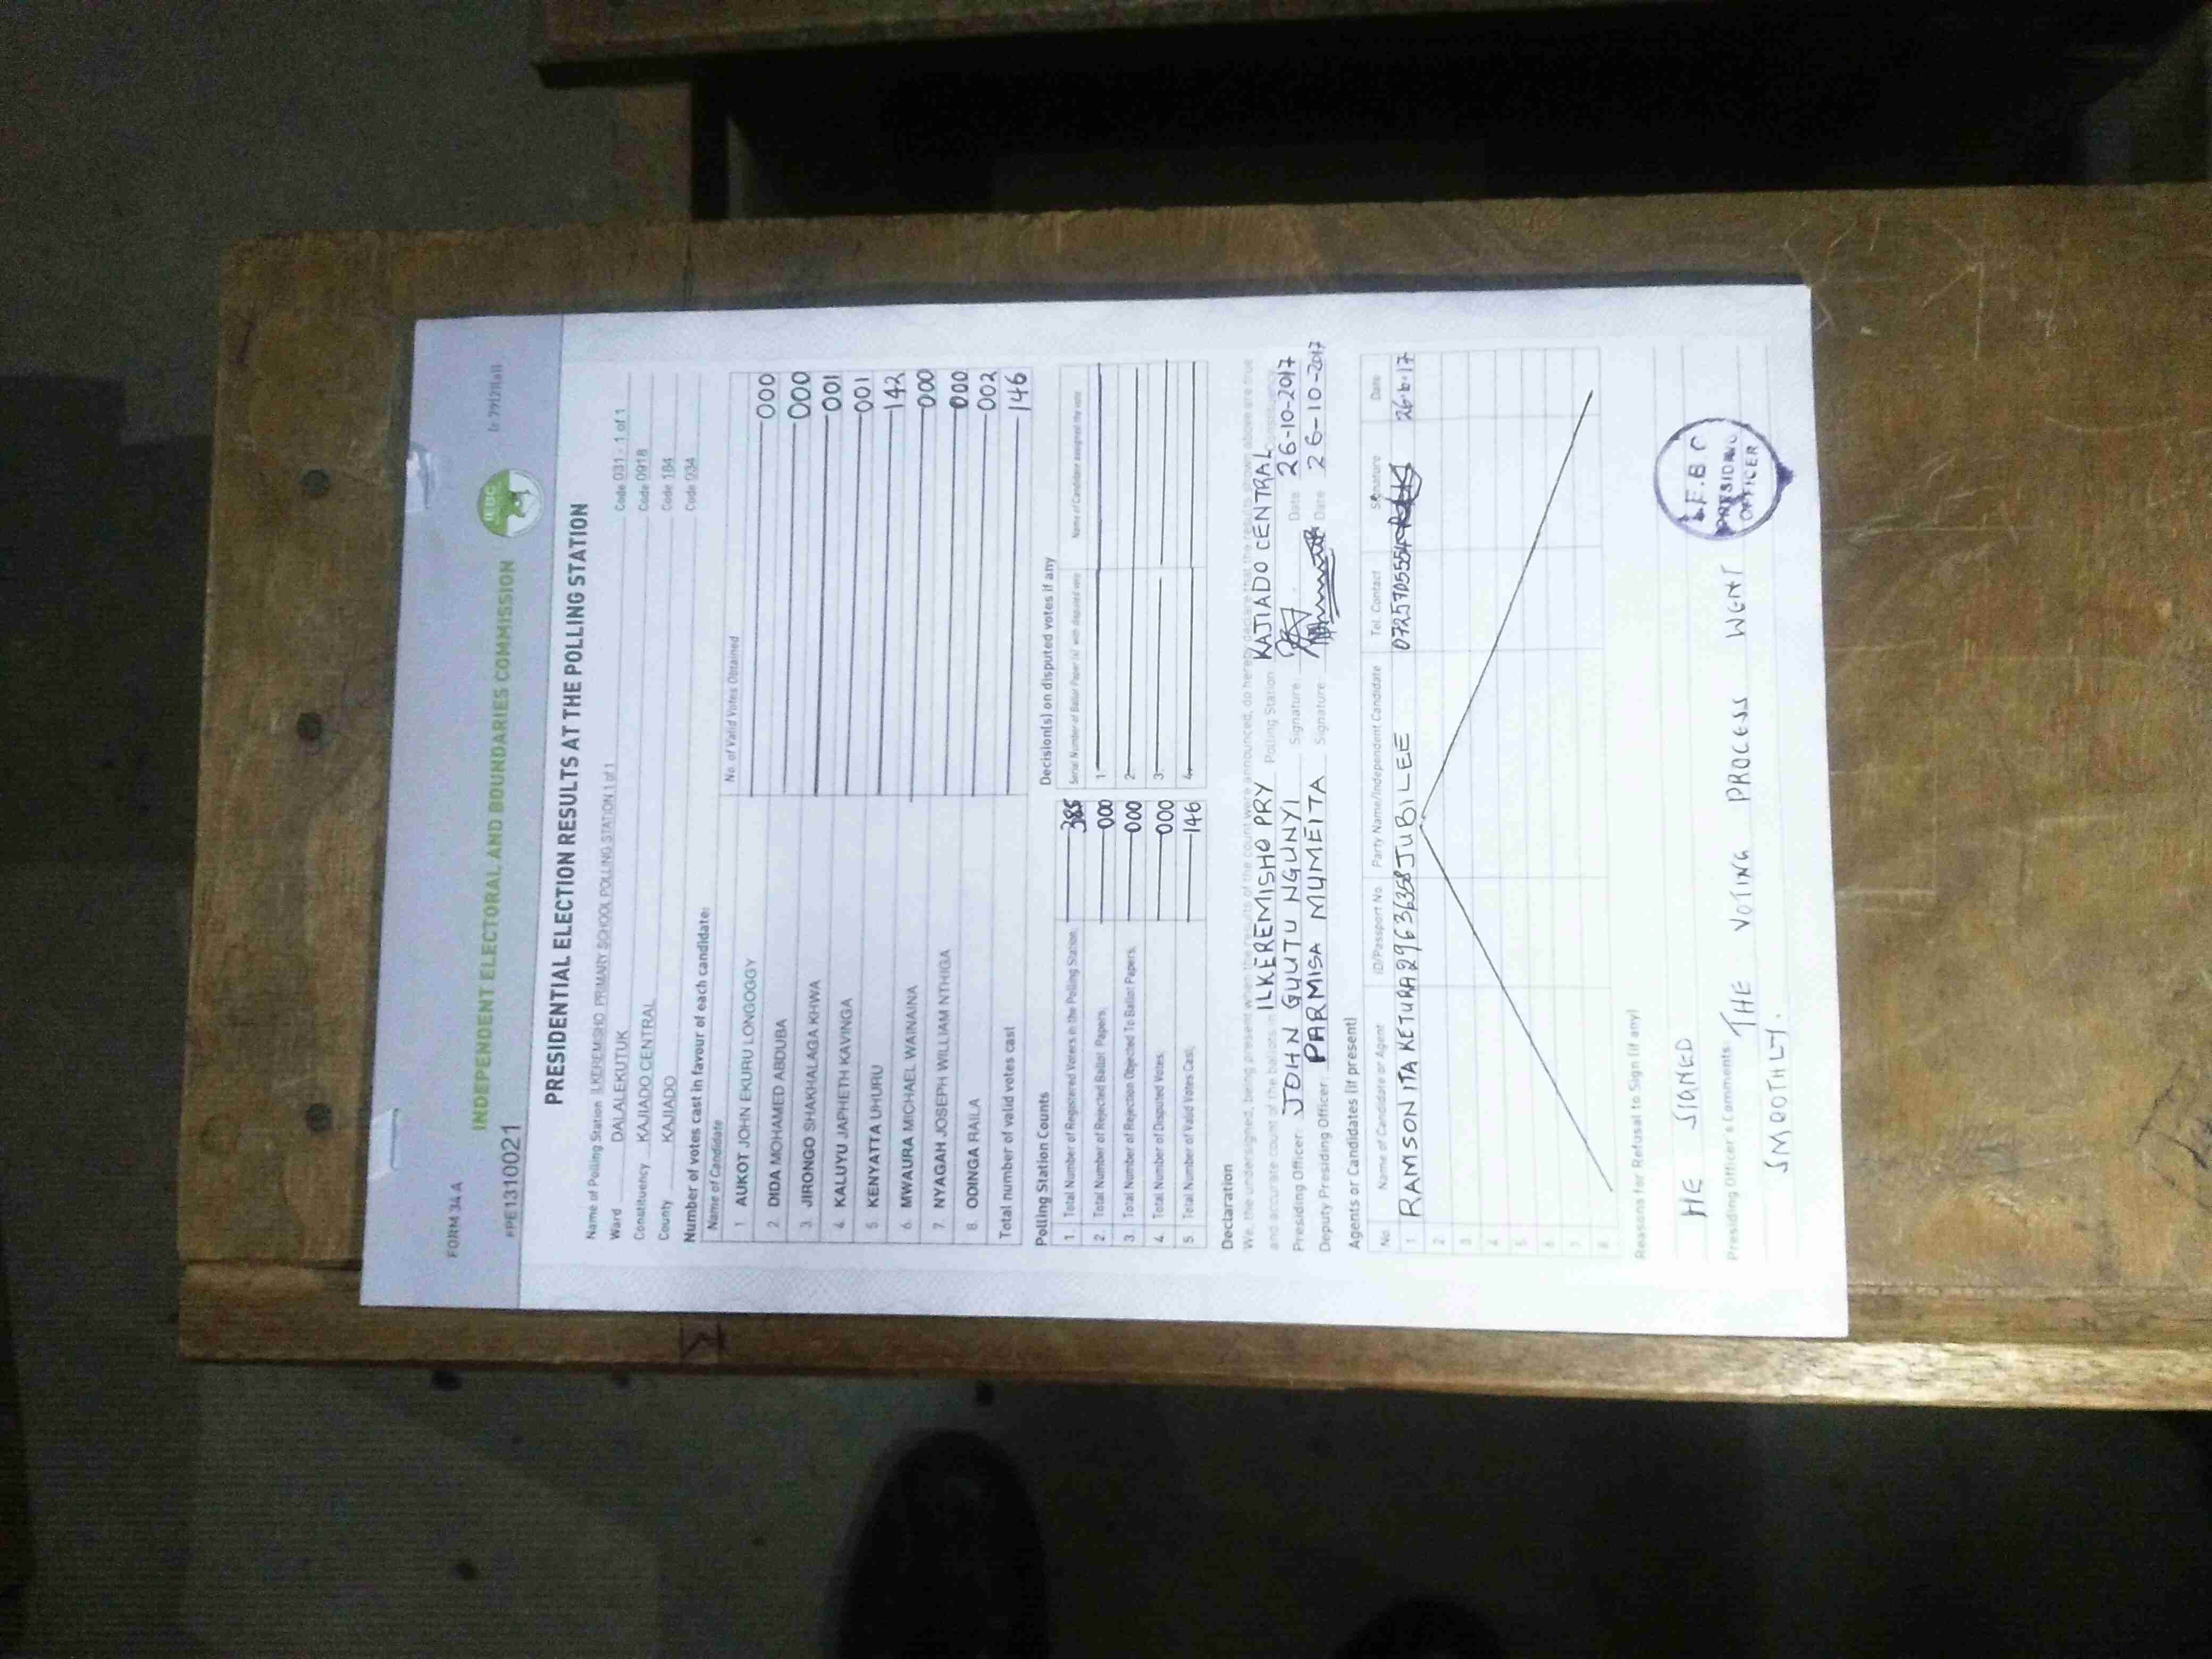 FORM 34 A
PPE1310021
INDEPENDENT ELECTORAL AND BOUNDARIES COMMISSION
IEBC
PRESIDENTIAL ELECTION RESULTS AT THE POLLING STATION
Name of Polling Station ILKEREMISHO PRIMARY SCHOOL POLLING STATION 1 of 1 Code 031 - 1 of 1
Ward DALALEKUTUK Code 0918
Constituency KAJIADO CENTRAL Code 184
County KAJIADO Code 034
Number of votes cast in favour of each candidate:
Name of Candidate No. of Valid Votes Obtained
1 AUKOT JOHN EKURU LONGOGGY 000
2. DIDA MOHAMED ABDUBA 000
3. JIRONGO SHAKHALAGA KHWA 001
4. KALUYU JAPHETH KAVINGA 001
5 KENYATTA UHURU 142
6. MWAURA MICHAEL WAINAINA 000
7. NYAGAH JOSEPH WILLIAM NTHIGA 000
8. ODINGA RAILA 002
Total number of valid votes cast 146
Polling Station Counts
1. Total Number of Registered Voters in the Polling Station 385
2. Total Number of Rejected Ballot Papers 000
3. Total Number of Rejection Objected To Ballot Papers 000
4. Total Number of Disputed Votes 000
5. Total Number of Valid Votes Cast 146
Decision(s) on disputed votes if any
Serial Number of Ballot Paper (s) with disputed vote Name of Candidate assigned the vote
1.
2
3.
4.
Declaration
We, the undersigned, being present when the results of the count were announced, do hereby declare that the results shown above are true
and accurate count of the ballots in ILKEREMISHO PRY Polling Station KAJIADO CENTRAL Constituency
Presiding Officer: JOHN GUUTU NGUNYI Signature: Date 26-10-2017
Deputy Presiding Officer: PARMISA MUMEITA Signature: Date 26-10-2017
Agents or Candidates (if present)
No. Name of Candidate or Agent ID/Passport No. Party Name/Independent Candidate Tel. Contact Signature Date
1 RAMSON ITA KETURA 29636358 JUBILEE 0725705554
2
3
4
5
6
7
8
Reasons for Refusal to Sign (if any)
HE SIGNED
Presiding Officer's Comments: THE VOTING PROCESS WENT
SMOOTHLY.
I.E.B.C
PRESIDING
OFFICER